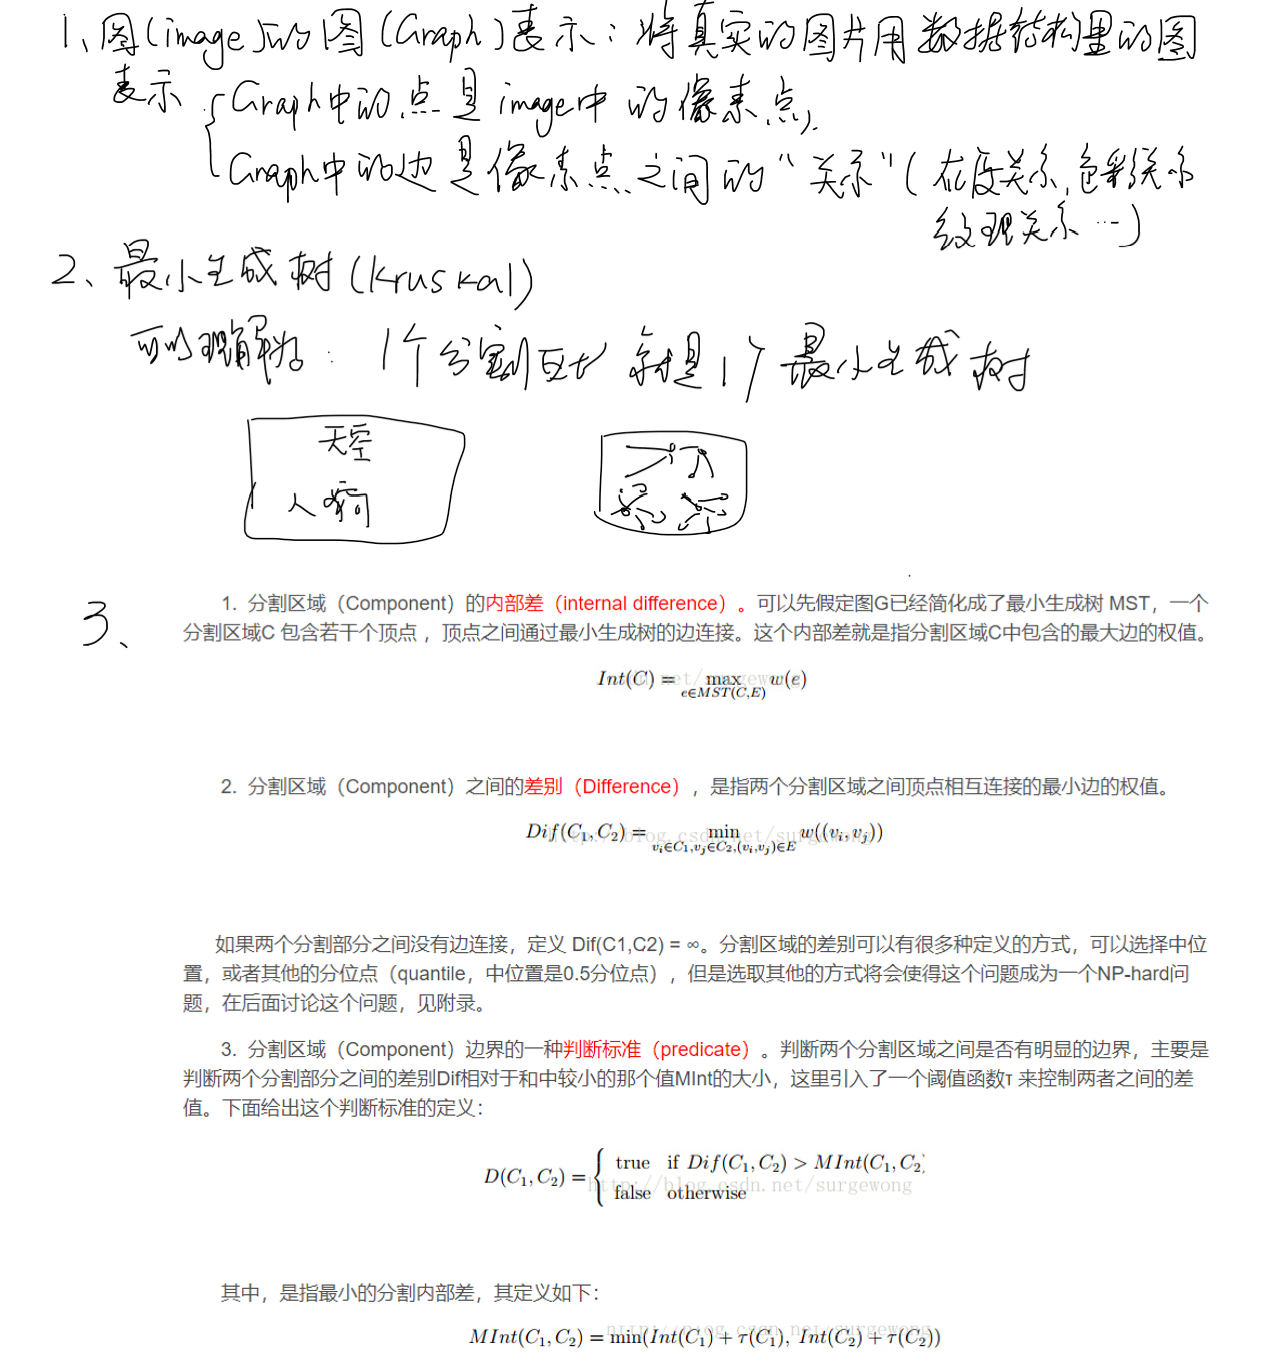 1、图(image)的图(Graph)表示:将真实的图片用数据结构里的图
表示 Graph中的点是image中的像素点,
Graph中的边是像素点之间的"关系"(灰度关系,色彩关系
纹理关系…)
2、最小生成树(Kruskal)
可以理解为: 1个分割区域就是1个最小生成树
天空
人
3、
1. 分割区域（Component）的内部差（internal difference）。可以先假定图G已经简化成了最小生成树 MST，一个
分割区域C 包含若干个顶点 ，顶点之间通过最小生成树的边连接。这个内部差就是指分割区域C中包含的最大边的权值。
Int(C) = max_{e∈MST(C,E)} w(e)
2. 分割区域（Component）之间的差别（Difference），是指两个分割区域之间顶点相互连接的最小边的权值。
Dif(C₁, C₂) = min_{vᵢ∈C₁,vⱼ∈C₂,(vᵢ,vⱼ)∈E} w((vᵢ, vⱼ))
http://blog.csdn.net/surgewong
如果两个分割部分之间没有边连接，定义 Dif(C1,C2) = ∞。分割区域的差别可以有很多种定义的方式，可以选择中位
置，或者其他的分位点（quantile，中位置是0.5分位点），但是选取其他的方式将会使得这个问题成为一个NP-hard问
题，在后面讨论这个问题，见附录。
3. 分割区域（Component）边界的一种判断标准（predicate）。判断两个分割区域之间是否有明显的边界，主要是
判断两个分割部分之间的差别Dif相对于和中较小的那个值MInt的大小，这里引入了一个阈值函数τ 来控制两者之间的差
值。下面给出这个判断标准的定义：
D(C₁, C₂) = { true if Dif(C₁, C₂) > MInt(C₁, C₂)
false otherwise
http://blog.csdn.net/surgewong
其中，是指最小的分割内部差，其定义如下：
MInt(C₁, C₂) = min(Int(C₁) + τ(C₁), Int(C₂) + τ(C₂))